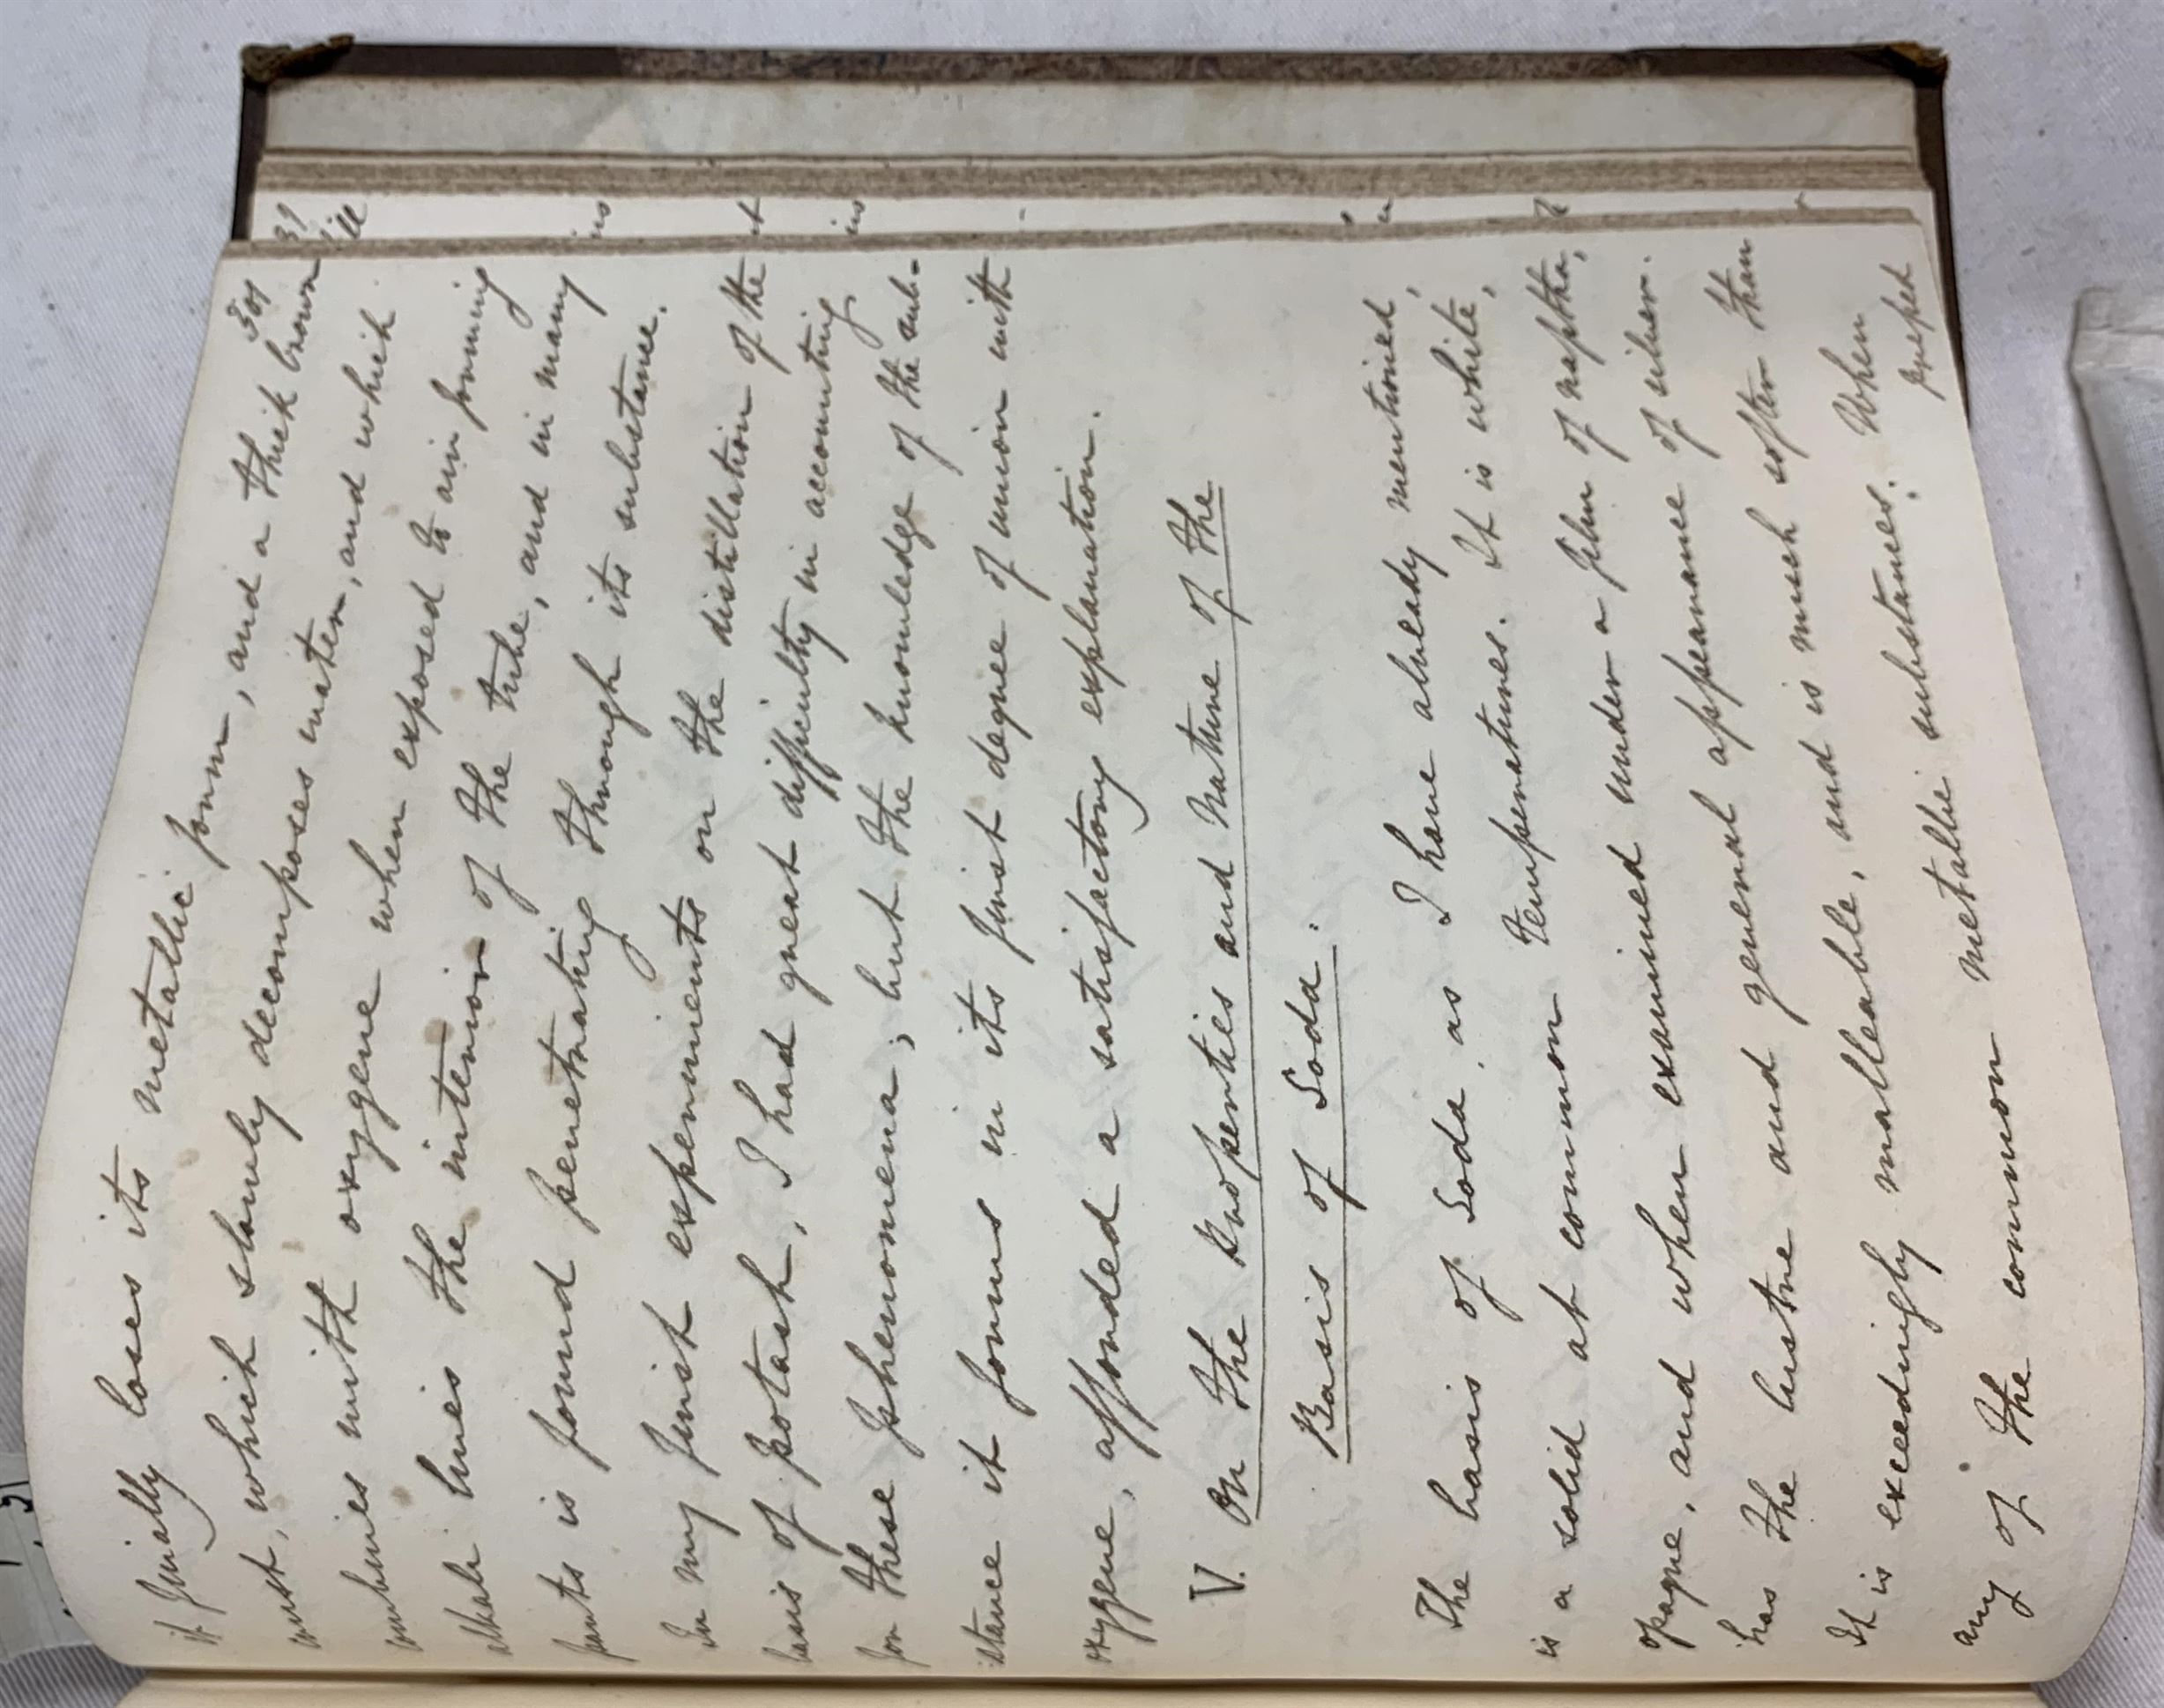 301
it finally loses its metallic form, and a thick brown
crust, which slowly decomposes water, and which
combines with oxygene when exposed to air forming
alkali lines the interior of the tube, and in many
parts is found penetrating through its substance.
In my first experiments on the distillation of the
basis of potash, I had great difficulty in accounting
for these phenomena; but the knowledge of the sub-
stance it forms in its first degree of union with
oxygene, afforded a satisfactory explanation.
V. On the Properties and Nature of the
Basis of Soda.
The basis of Soda, as I have already mentioned,
is a solid at common temperatures. It is white,
opaque, and when examined under a film of naptha,
has the lustre and general appearance of silver.
It is exceedingly malleable, and is much softer than
any of the common metallic substances. When
pressed